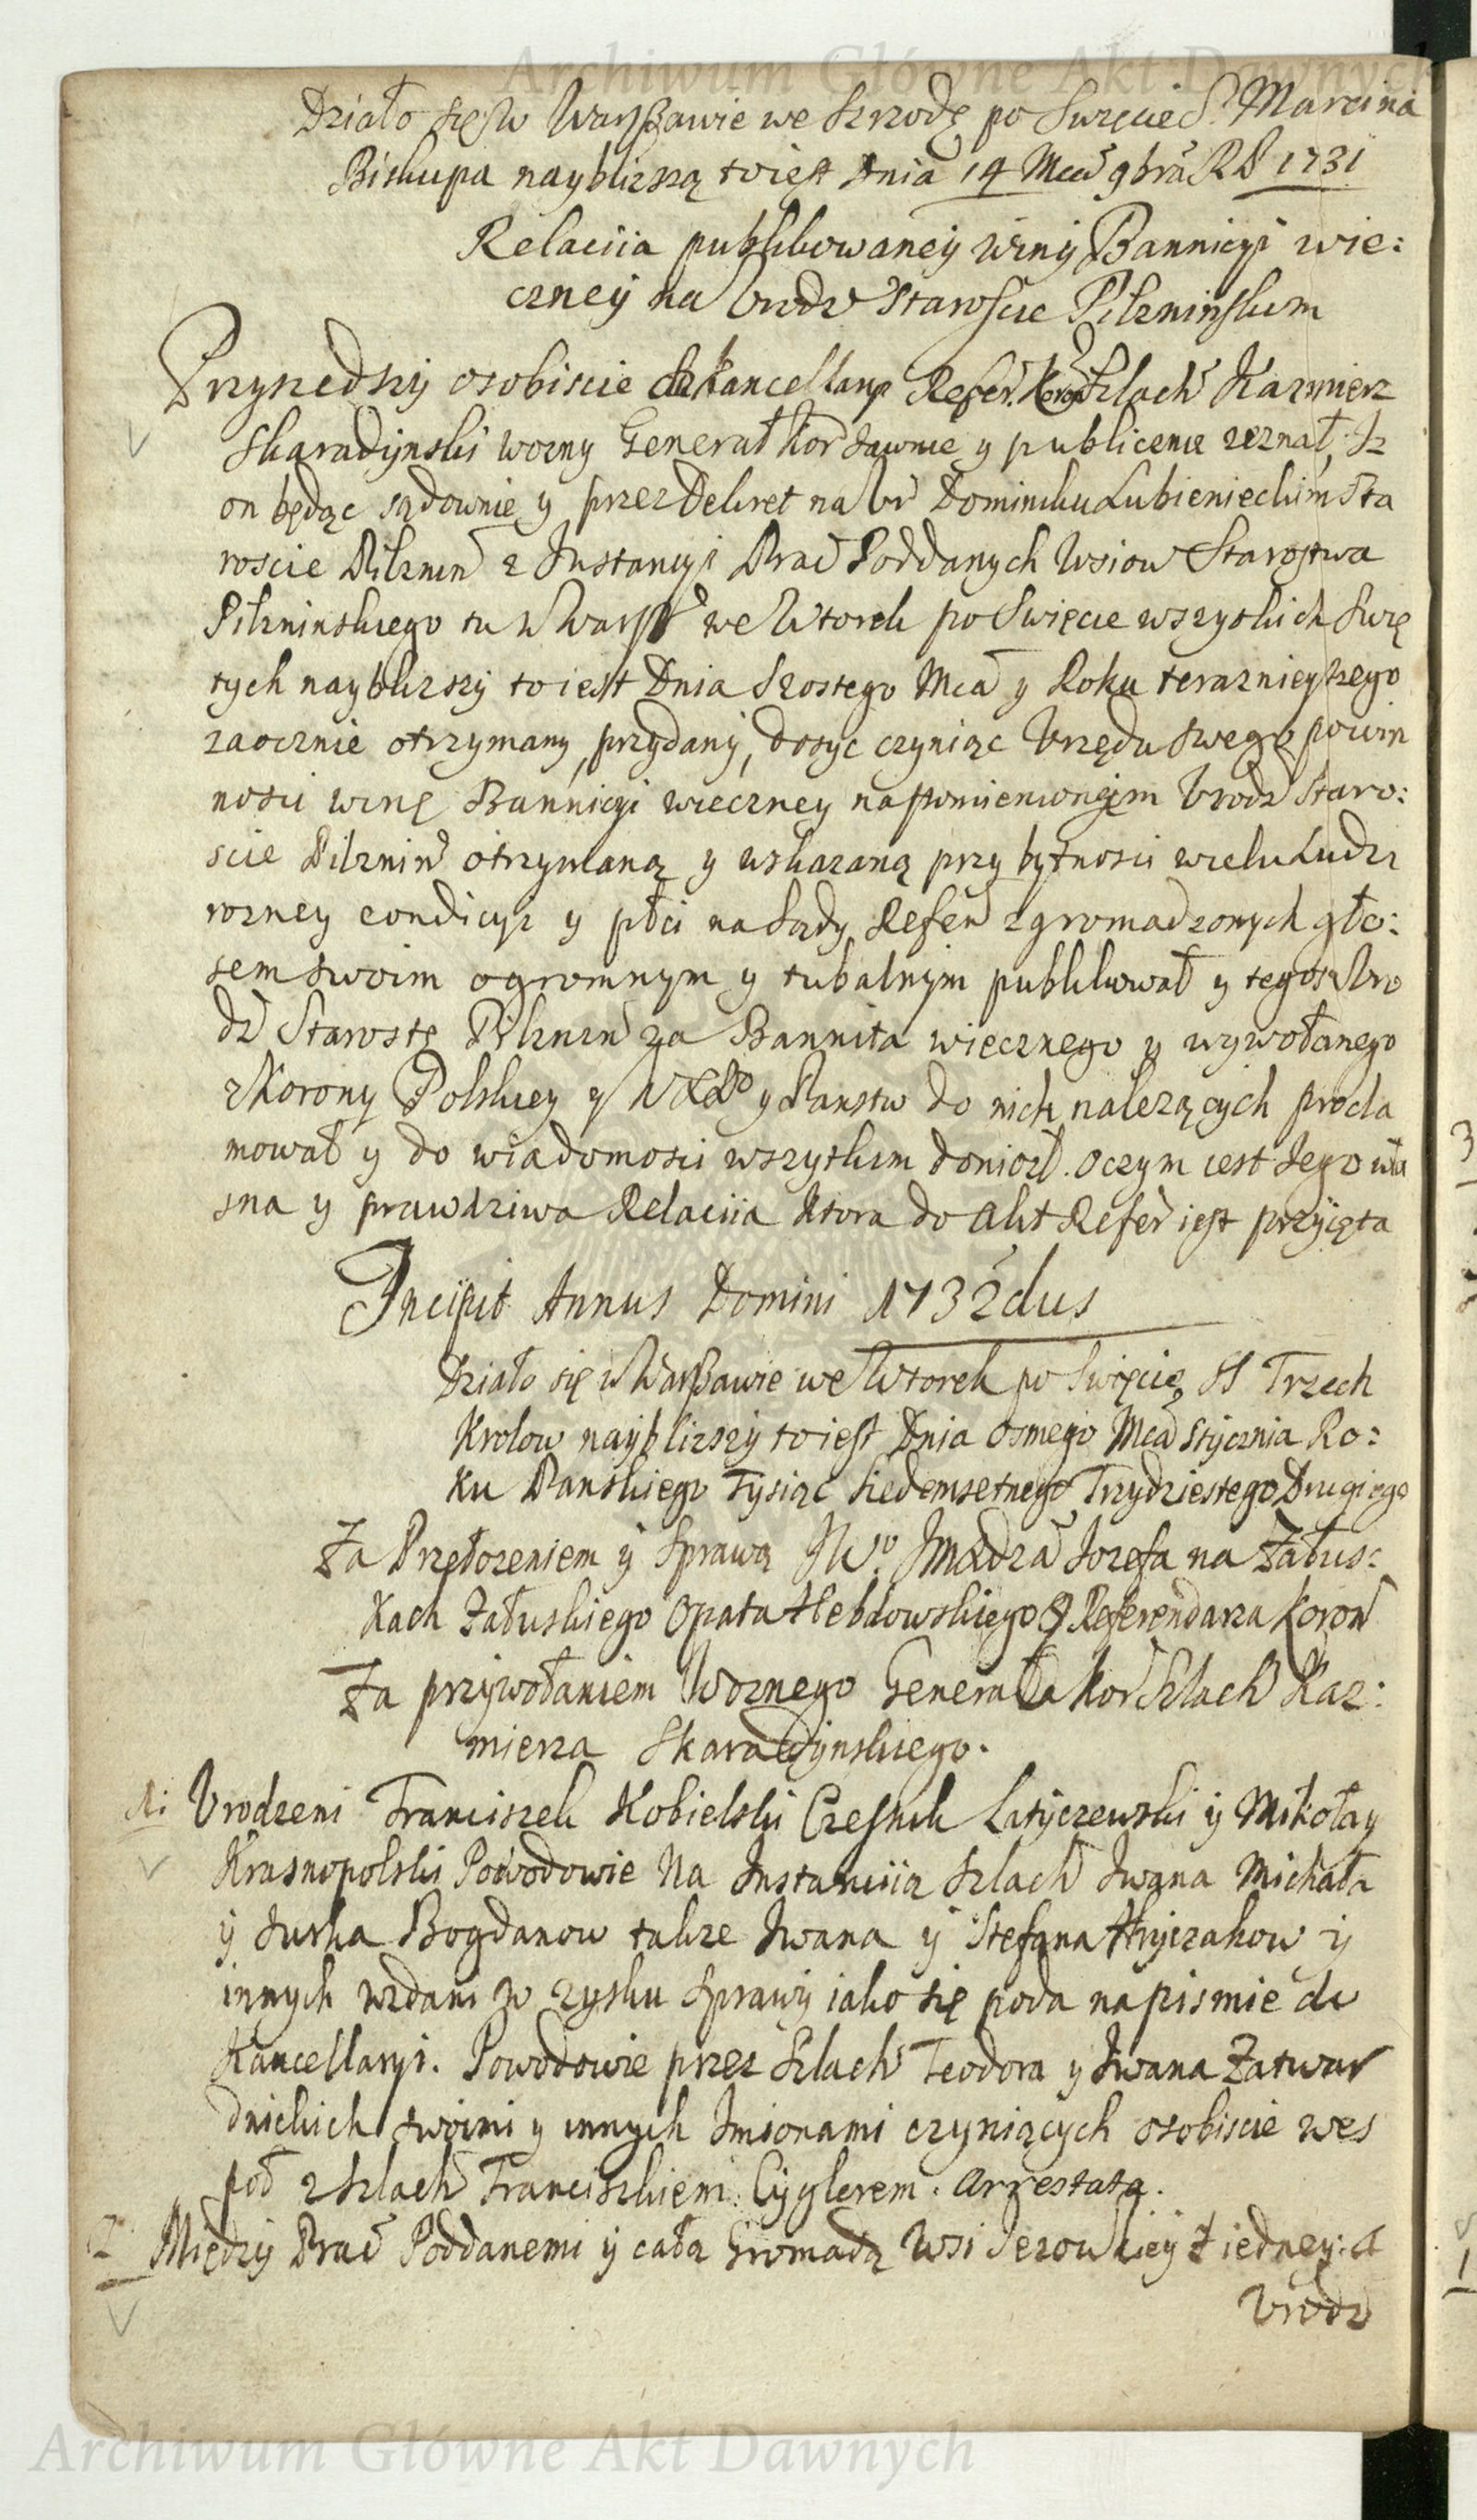 Archiwum Główne Akt Dawnych
Działo się w Warszawie we Szrzodę po Swięcie S. Marcina
Biskupa naybliszą to iest Dnia 14 Mca 9bra RP 1731
Relaciia publikowaney winy Bannicyi wie:
czney na Urodz Staroscie Pilzninskim
Przyszedszy osobiscie do Kancellaryi Refer. Koron Szlach Kazmierz
Skaradynski wozny Generał Kor Jawnie y publicznie zeznał, Iz
on będąc sądownie y przez Dekret na Ur Dominiku Lubienieckim Sta
roscie Pilznin z Instancyi Prac Poddanych Wsiow Starostwa
Pilzninskiego tu w Warsz we Wtorek po Swięcie wszystkich Swię
tych naybliszy to iest Dnia Szostego Mca y Roku teraznieyszego
zaocznie otrzymany, przydany, dosyc czyniąc Urzędu swego powin
nosci winę Bannicyi wieczney na pomienionym Urodz Staro:
scie Pilznin otrzymaną y wskazaną przy bytnosci wielu Ludzi
rozney condicyi y płci na Sądy Refen zgromadzonych gło:
sem swoim ogromnym y tubalnym publikował y tegosz Uro
dz Starostę Pilznin za Bannita wiecznego y wywołanego
z Korony Polskiey y WXLo y Panstw do nich nalezących procla
mował y do wiadomosci wszystkim doniosł. O czym iest Jego wła
sna y prawdziwa Relaciia Ktora do Akt Refer iest przyięta
Incipit Annus Domini 1732dus
Działo się w Warszawie we Wtorek po Swięcie SS Trzech
Krolow naybliszy to iest Dnia osmego Mca Stycznia Ro:
ku Panskiego Tysiąc Siedemsetnego Trzydziestego Drugiego
Za Przełozeniem y Sprawą JWo Jmci Xdza Jozefa na Załus:
kach Załuskiego Opata Hebdowskiego Referendarza Koron
Za przywołaniem Woznego Generała Kor Szlach Kaz:
mierza Skaradynskiego.
1: Urodzeni Franciszek Kobielski Czesnik Latyczewski y Mikołay
Krasnopolski Powodowie Na Instanciią Szlach Iwana Michała
y Iuska Bogdanow takze Iwana y Stefana Hryczakow y
innych wzdani w zysku Sprawy iako się poda na pismie do
Kancellaryi. Powodowie przez Szlach Teodora y Iwana Zatwar
dnickich swoim y innych Imionami czyniących osobiscie wes
poł z Szlach Franciszkiem Cyglerem. Arrestata.
2 Między Prac Poddanemi y całą Gromadą Wsi Jezowkiey z iedney: A
Urodz
Archiwum Główne Akt Dawnych